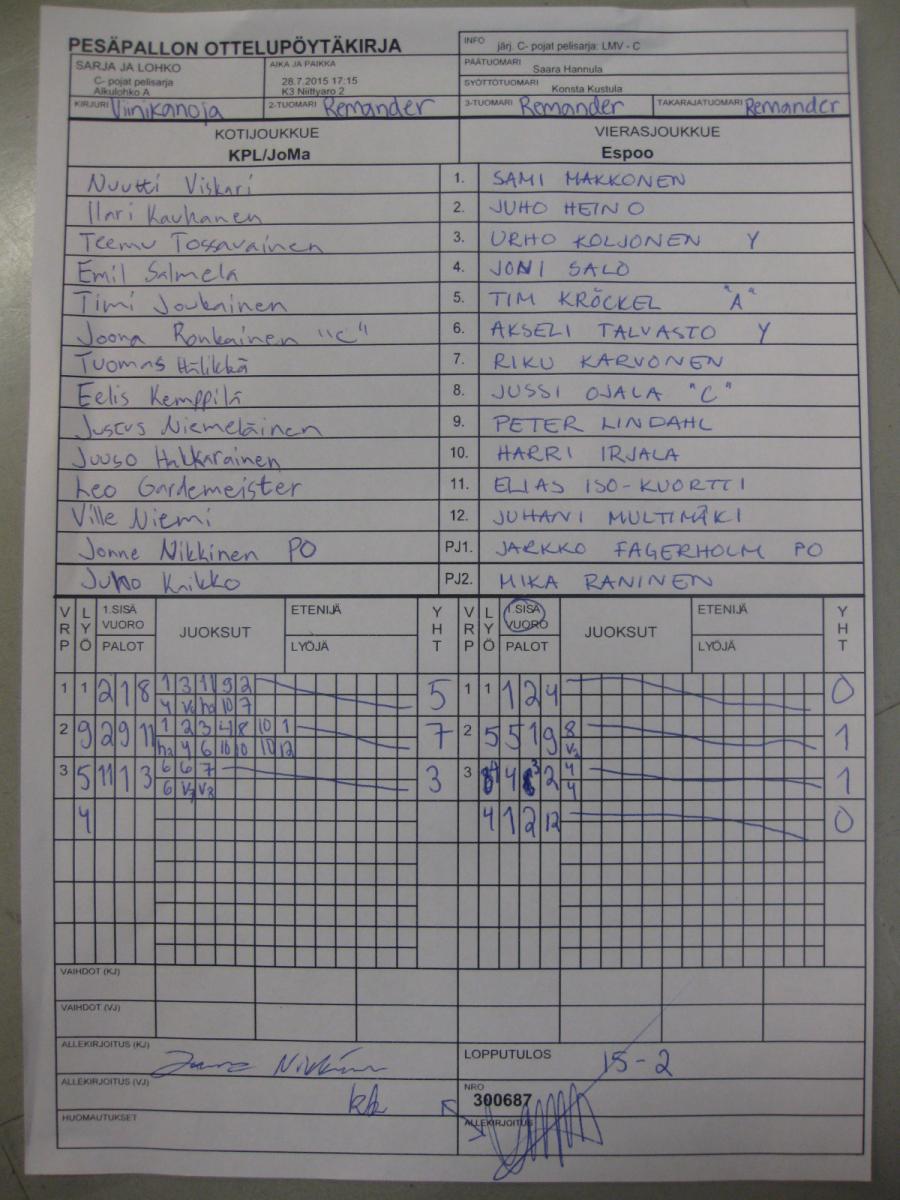 PESÄPALLON OTTELUPÖYTÄKIRJA
INFO järj. C- pojat pelisarja: LMV - C
SARJA JA LOHKO
C- pojat pelisarja
Alkulohko A
AIKA JA PAIKKA
28.7.2015 17:15
K3 Niittyaro 2
PÄÄTUOMARI Saara Hannula
SYÖTTÖTUOMARI Konsta Kustula
KIRJURI Viinikanoja 2-TUOMARI Remander 3-TUOMARI Remander TAKARAJATUOMARI Remander
KOTIJOUKKUE VIERASJOUKKUE
KPL/JoMa Espoo
Nuutti Viskari 1. SAMI MAKKONEN
Ilari Kauhanen 2. JUHO HEINO
Teemu Tossavainen 3. URHO KOLJONEN Y
Emil Salmela 4. JONI SALO
Timi Joukainen 5. TIM KRÖCKEL "A"
Joona Ronkainen "C" 6. AKSELI TALVASTO Y
Tuomas Hälikkä 7. RIKU KARVONEN
Eelis Kemppilä 8. JUSSI OJALA "C"
Justus Niemeläinen 9. PETER LINDAHL
Juuso Hakkarainen 10. HARRI IRJALA
Leo Gardemeister 11. ELIAS ISO-KUORTTI
Ville Niemi 12. JUHANI MULTIMÄKI
Jonne Nikkinen PO PJ1. JARKKO FAGERHOLM PO
Juho Kaikko PJ2. MIKA RANINEN
VRP LYÖ 1.SISÄ VUORO PALOT JUOKSUT ETENIJÄ LYÖJÄ YHT VRP LYÖ 1.SISÄ VUORO PALOT JUOKSUT ETENIJÄ LYÖJÄ YHT
1 1 2 1 8 1 3 11 9 2 5 1 1 1 2 4 0
4 V2 h2 10 7
2 9 2 9 11 1 2 3 4 8 10 1 7 2 5 5 1 9 8 1
h2 4 6 10 10 10 12 V2
3 5 11 1 3 6 6 7 3 3 4 2 4 1
6 V3 V3 4
4 4 1 2 12 0
VAIHDOT (KJ)
VAIHDOT (VJ)
ALLEKIRJOITUS (KJ) LOPPUTULOS 15-2
ALLEKIRJOITUS (VJ) NRO 300687
HUOMAUTUKSET ALLEKIRJOITUS